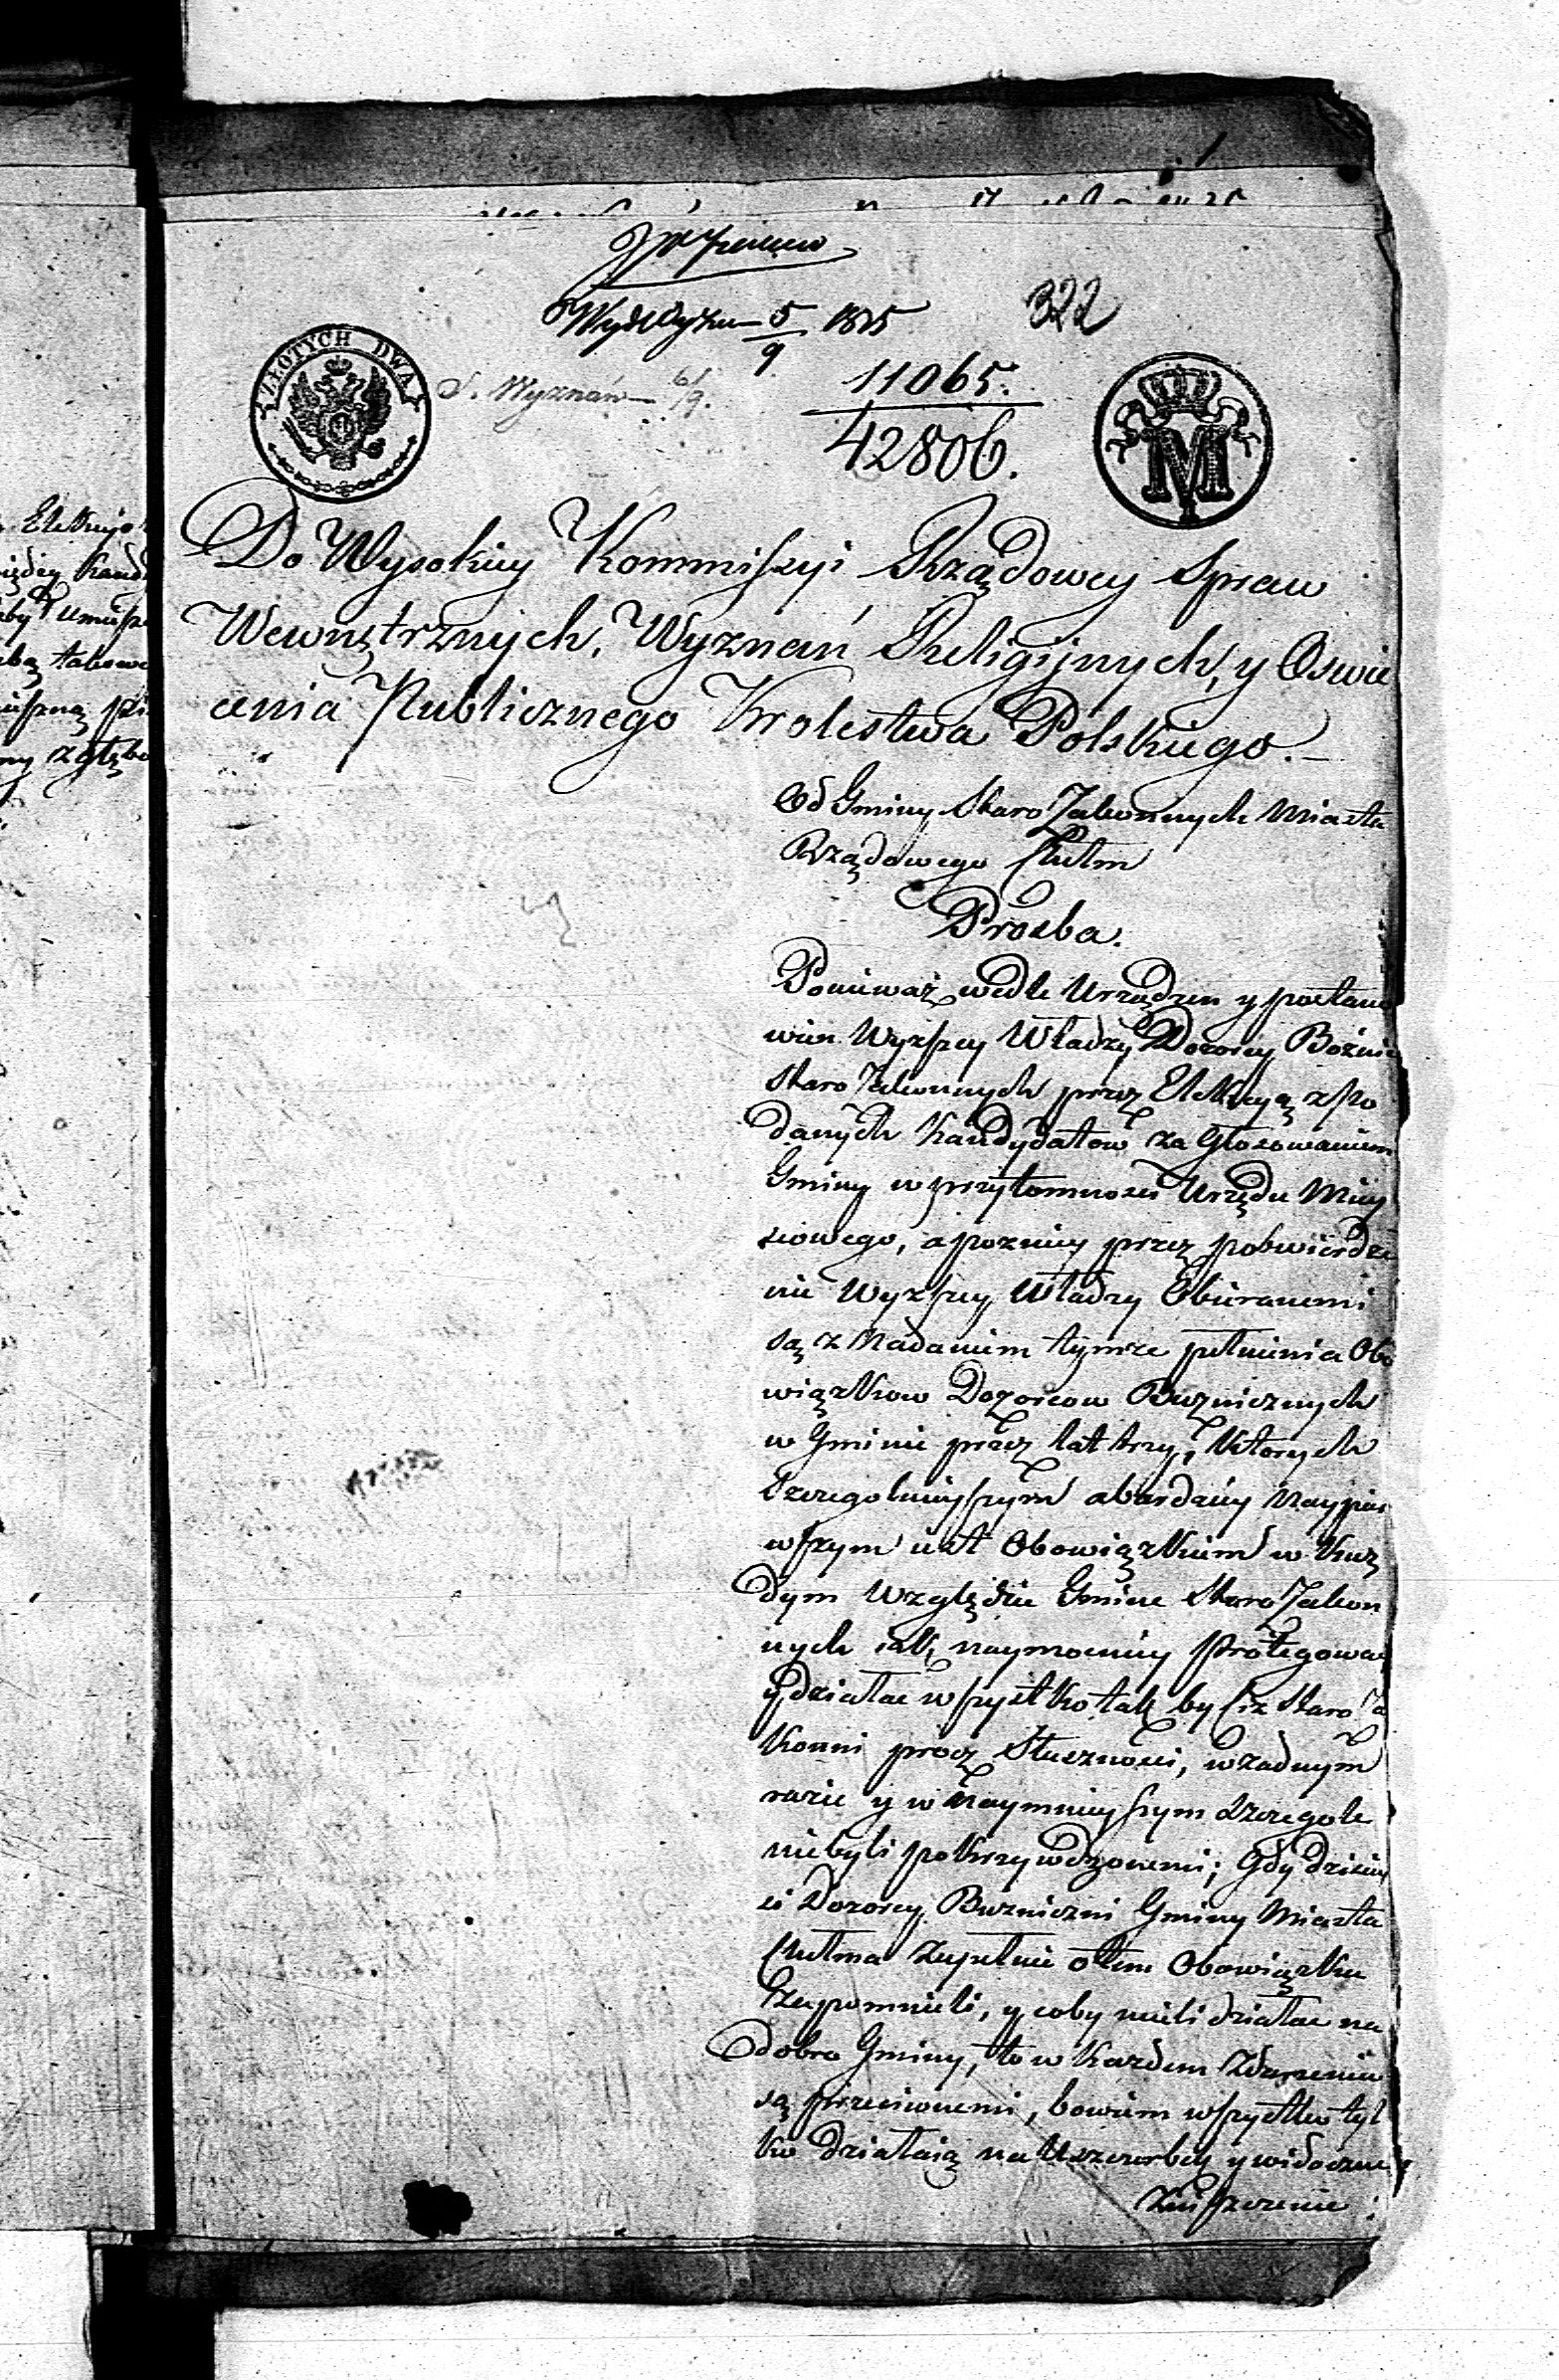 322
Wydz Wyzn 5/9 1835
ZŁOTYCH DWA
S. Wyznań 6/9.
11065.
42806.
M
Do Wysokiey Kommissyi Rządowey Spraw
Wewnętrznych, Wyznań Religijnych, y Oswie
cenia Publicznego Krolestwa Polskiego.
Od Gminy Staro Zakonnych Miasta
Rządowego Chełm
Prosba.
Ponieważ wedle Urządzen y postano
wien Wyzszey Władzy Dozorcy Boźnic
Staro Zakonnych przez Elekcyą z po
danych Kandydatow za Głosowaniem
Gminy w przytomnosci Urzędu Miey
scowego, a pozniey przez potwierdze
nie Wyzszey Władzy Obieranemi
są z Nadaniem tymze pełnienia Obo
wiązkow Dozorcow Buzniczych
w Gminie przez lat trzy, ktorych
szczegolnieyszym a bardziey Naypier
wszym iest Obowiązkiem w kaz
dym względzie Gmine Staro Zakon
nych iak naymocniey protegowac
y działac wszystko tak by ciz Staro Za
konni procz Słusznosci, w zadnym
razie y w naymnieyszym szczegole
niebyli pokrzywdzonemi; Gdy dzisiey
si Dozorcy Buzniczni Gminy Miasta
Chełma Zupełnie o tem Obowiązku
Zapomnieli, y coby mieli działac na
dobro Gminy, to w kazdem Zdarzeniu
są przeciwnemi, bowiem wszystko tyl
ko działaią na Uszczerbek y widoczne
Zniszczenie